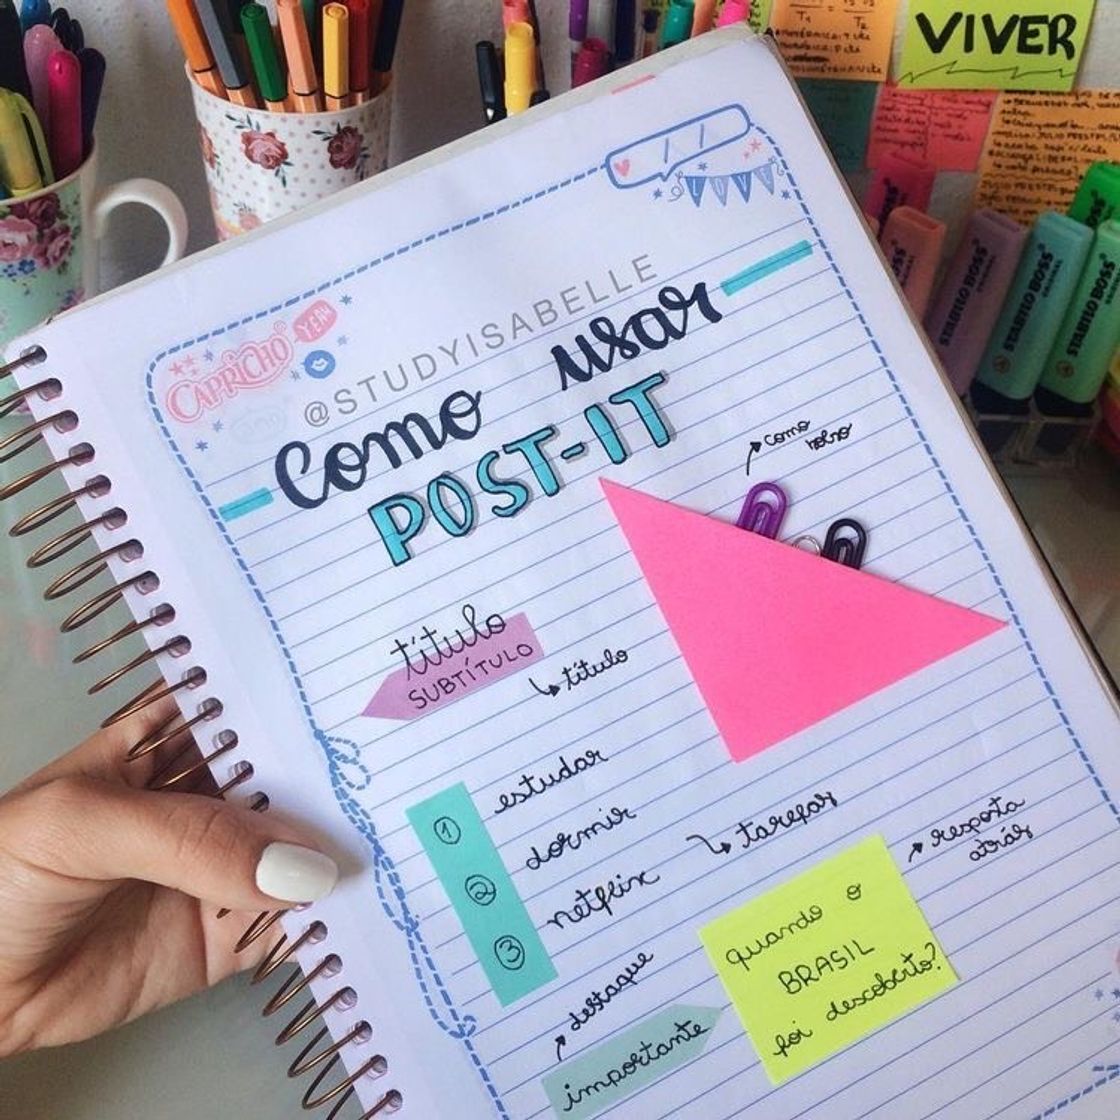 VIVER
LOVE
CAPRICHO
YEAH
@STUDYISABELLE
Como usar
POST-IT
como
bolso
título
SUBTÍTULO
título
1 estudar
2 dormir
3 netflix
tarefas
resposta
atrás
quando o
BRASIL
foi descoberto?
destaque
importante
STABILO BOSS
STABILO BOSS
STABILO BOSS